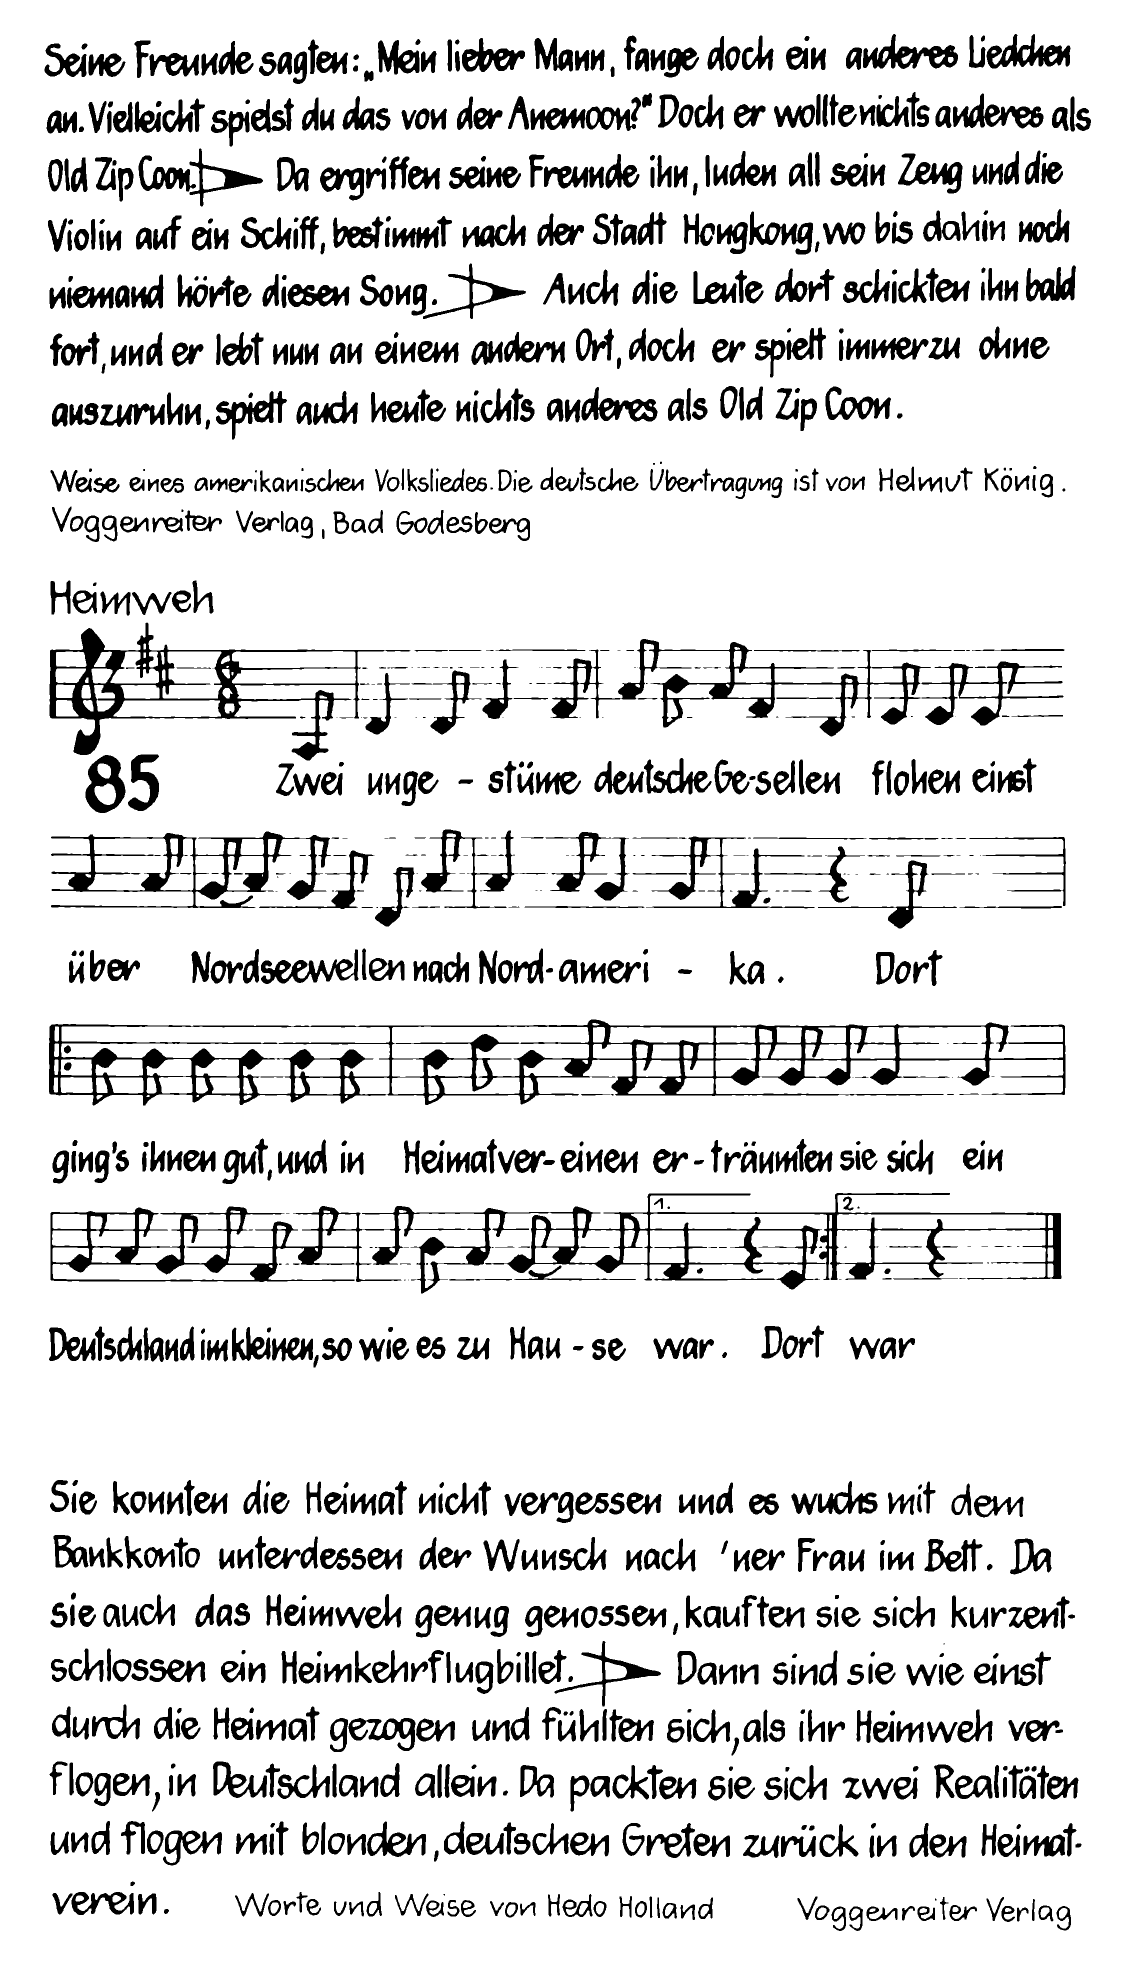 Seine Freunde sagten: „Mein lieber Mann, fange doch ein anderes Liedchen
an. Vielleicht spielst du das von der Anemoon?" Doch er wollte nichts anderes als
Old Zip Coon. Da ergriffen seine Freunde ihn, luden all sein Zeug und die
Violin auf ein Schiff, bestimmt nach der Stadt Hongkong, wo bis dahin noch
niemand hörte diesen Song. Auch die Leute dort schickten ihn bald
fort, und er lebt nun an einem andern Ort, doch er spielt immerzu ohne
auszuruhn, spielt auch heute nichts anderes als Old Zip Coon.
Weise eines amerikanischen Volksliedes. Die deutsche Übertragung ist von Helmut König.
Voggenreiter Verlag, Bad Godesberg
Heimweh
6
8
85
Zwei unge - stüme deutsche Ge-sellen flohen einst
über Nordseewellen nach Nord-ameri - ka. Dort
ging's ihnen gut, und in Heimatver-einen er-träumten sie sich ein
1. 2.
Deutschland im kleinen, so wie es zu Hau - se war. Dort war
Sie konnten die Heimat nicht vergessen und es wuchs mit dem
Bankkonto unterdessen der Wunsch nach 'ner Frau im Bett. Da
sie auch das Heimweh genug genossen, kauften sie sich kurzent-
schlossen ein Heimkehrflugbillet. Dann sind sie wie einst
durch die Heimat gezogen und fühlten sich, als ihr Heimweh ver-
flogen, in Deutschland allein. Da packten sie sich zwei Realitäten
und flogen mit blonden, deutschen Greten zurück in den Heimat-
verein. Worte und Weise von Hedo Holland Voggenreiter Verlag